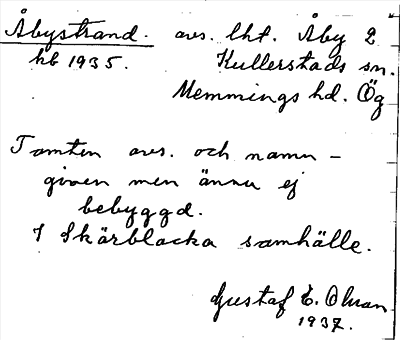 Åbystrand. avs. lht. Åby 2
hb 1935. Kullerstads sn.
Memmings hd. Ög
Tomten avs. och namn-
given men ännu ej
bebyggd.
I Skärblacka samhälle.
Gustaf E. Olman
1937.